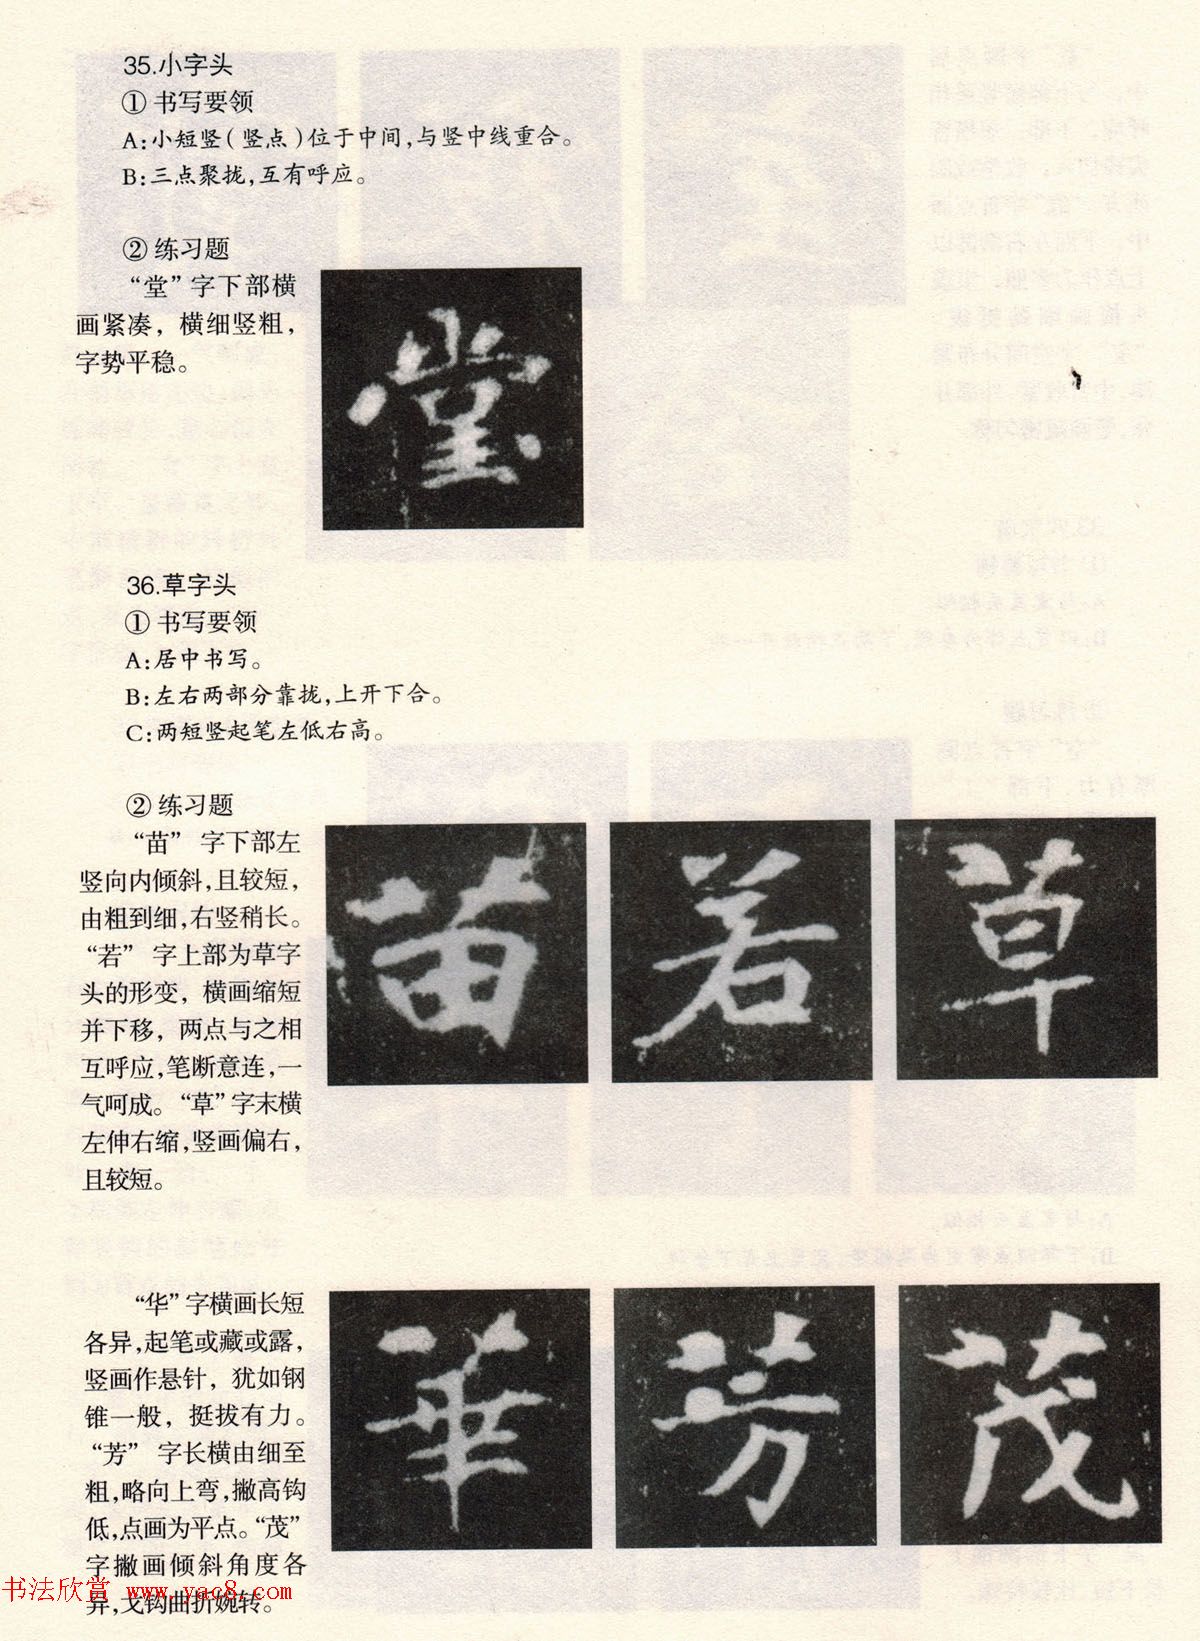 35.小字头
① 书写要领
A:小短竖(竖点)位于中间,与竖中线重合。
B:三点聚拢,互有呼应。
② 练习题
“堂”字下部横
画紧凑，横细竖粗，
字势平稳。
堂
36.草字头
① 书写要领
A:居中书写。
B:左右两部分靠拢,上开下合。
C:两短竖起笔左低右高。
② 练习题
“苗” 字下部左
竖向内倾斜,且较短，
由粗到细,右竖稍长。
“若” 字上部为草字
头的形变，横画缩短
并下移，两点与之相
互呼应,笔断意连,一
气呵成。“草”字末横
左伸右缩,竖画偏右，
且较短。
苗 若 草
“华”字横画长短
各异,起笔或藏或露，
竖画作悬针，犹如钢
锥一般，挺拔有力。
“芳” 字长横由细至
粗,略向上弯,撇高钩
低,点画为平点。“茂”
字撇画倾斜角度各
异,戈钩曲折婉转。
華 芳 茂
书法欣赏 www.yac8.com